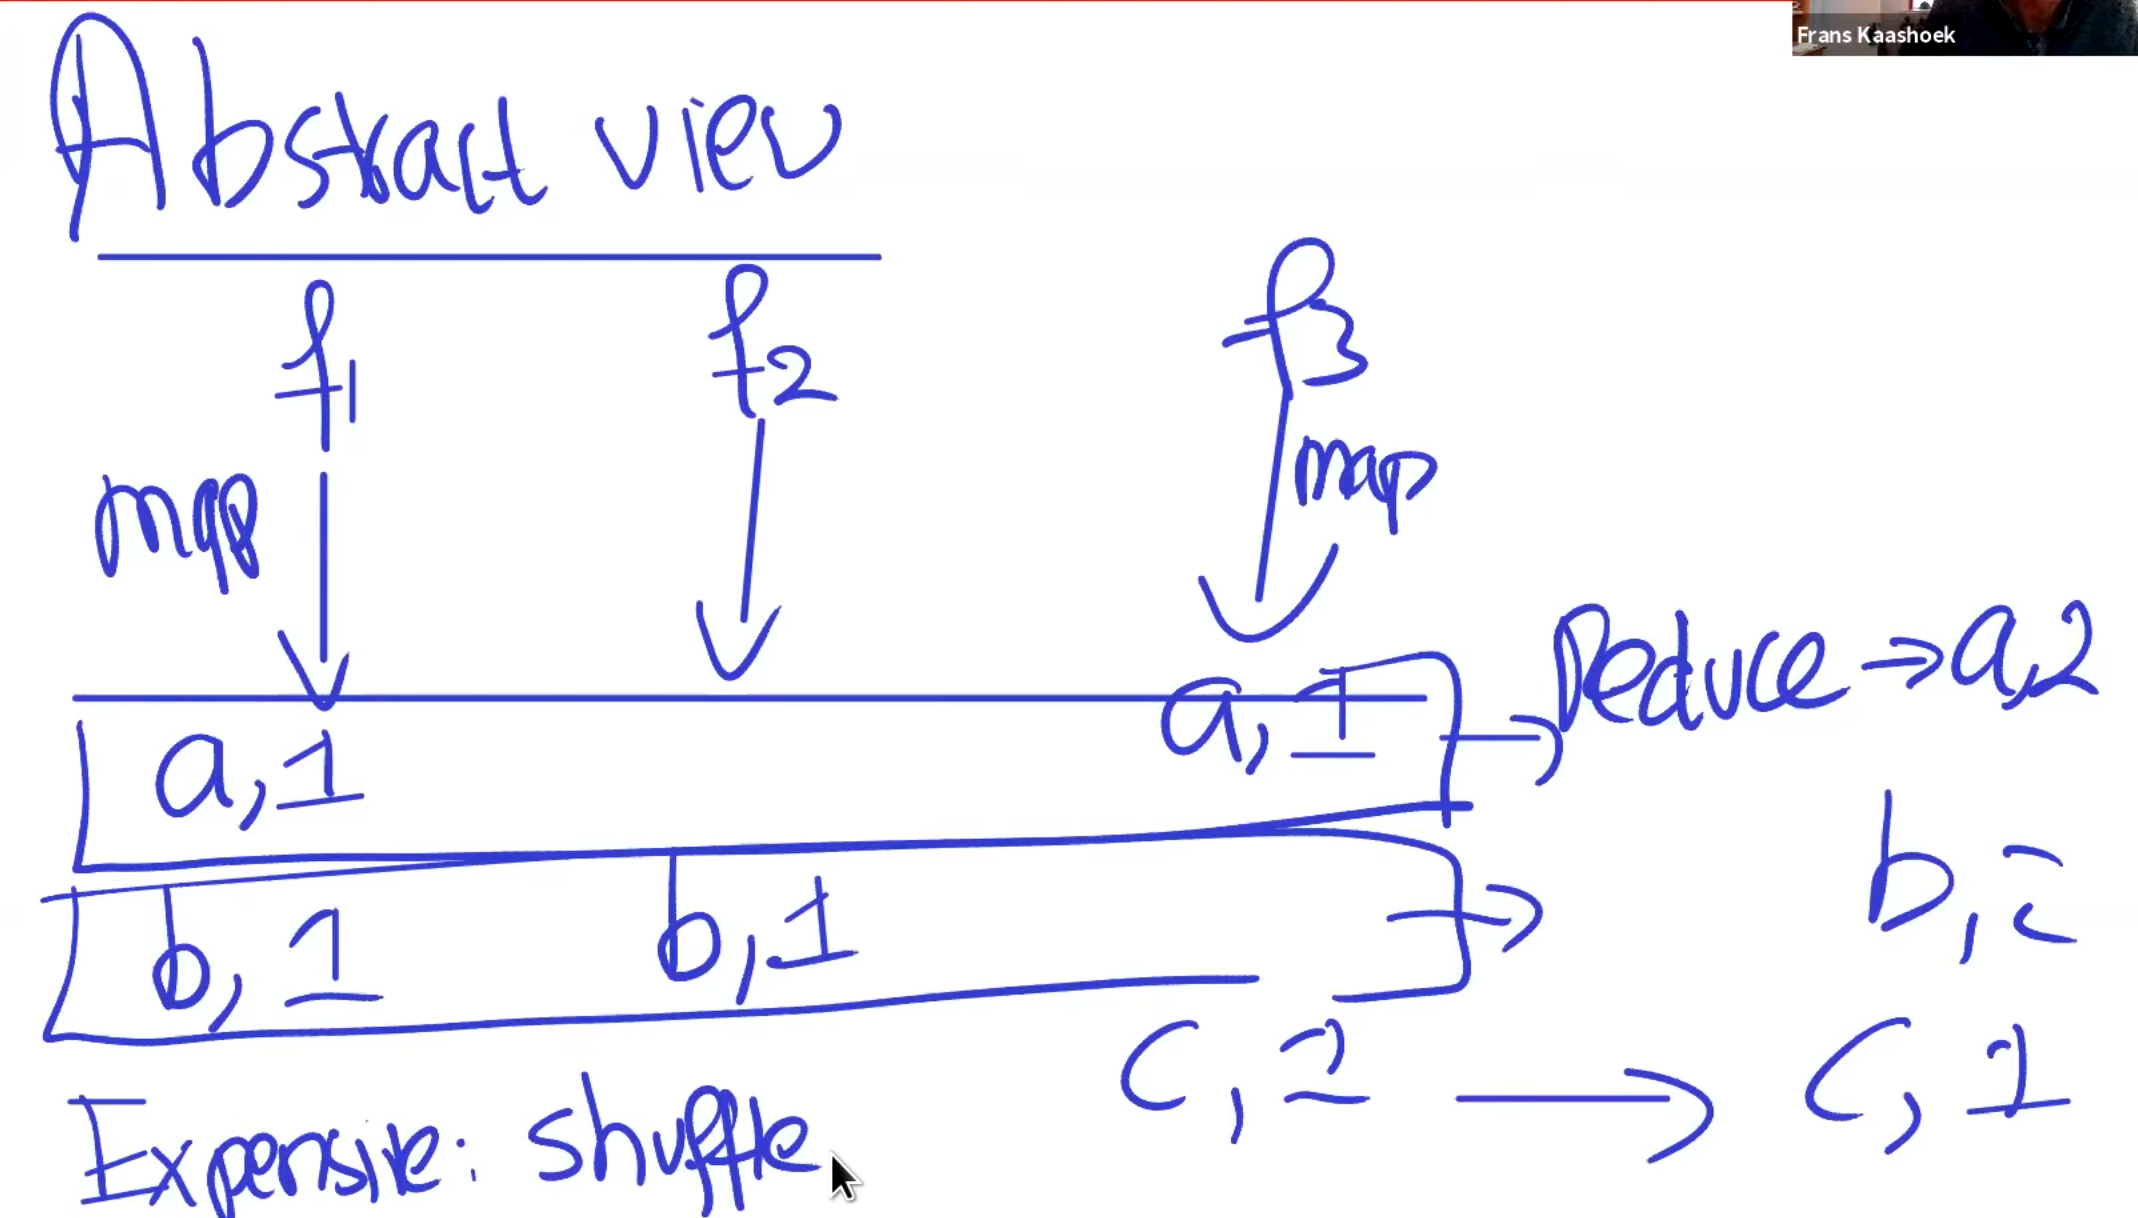 Frans Kaashoek
Abstract view
f1 f2 f3
map map
a,1 a,1 Reduce → a,2
b,1 b,1 b,2
c,2 → c,1
Expensive: shuffle